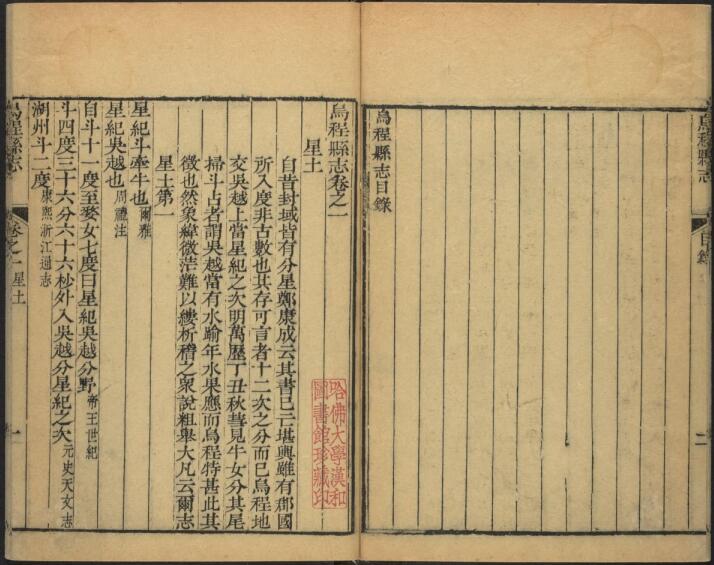 烏程縣志
目錄
二
烏程縣志目錄
烏程縣志卷之一
星土
自昔封域皆有分星鄭康成云其書已亡堪輿雖有郡國
所入度非古數也其存可言者十二次之分而已烏程地
交吳越上當星紀之次明萬歷丁丑秋彗見牛女分其尾
掃斗占者謂吳越當有水踰年水果應而烏程特甚此其
徵也然象緯微茫難以縷析稽之衆說粗舉大凡云爾志
星土第一
星紀斗牽牛也爾雅
星紀吳越也周禮注
自斗十一度至婺女七度曰星紀吳越分野帝王世紀
斗四度三十六分六十六秒外入吳越分星紀之次元史天文志
湖州斗二度康熙浙江通志
烏程縣志
卷之一
星土
一
哈佛大學漢和
圖書館珍藏印